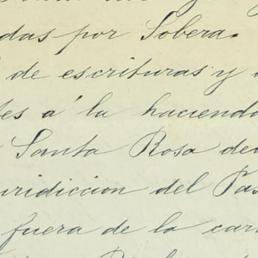 das por Sobera.
de escrituras y
tes á la hacienda
Santa Rosa de
uridiccion del Pas
fuera de la car